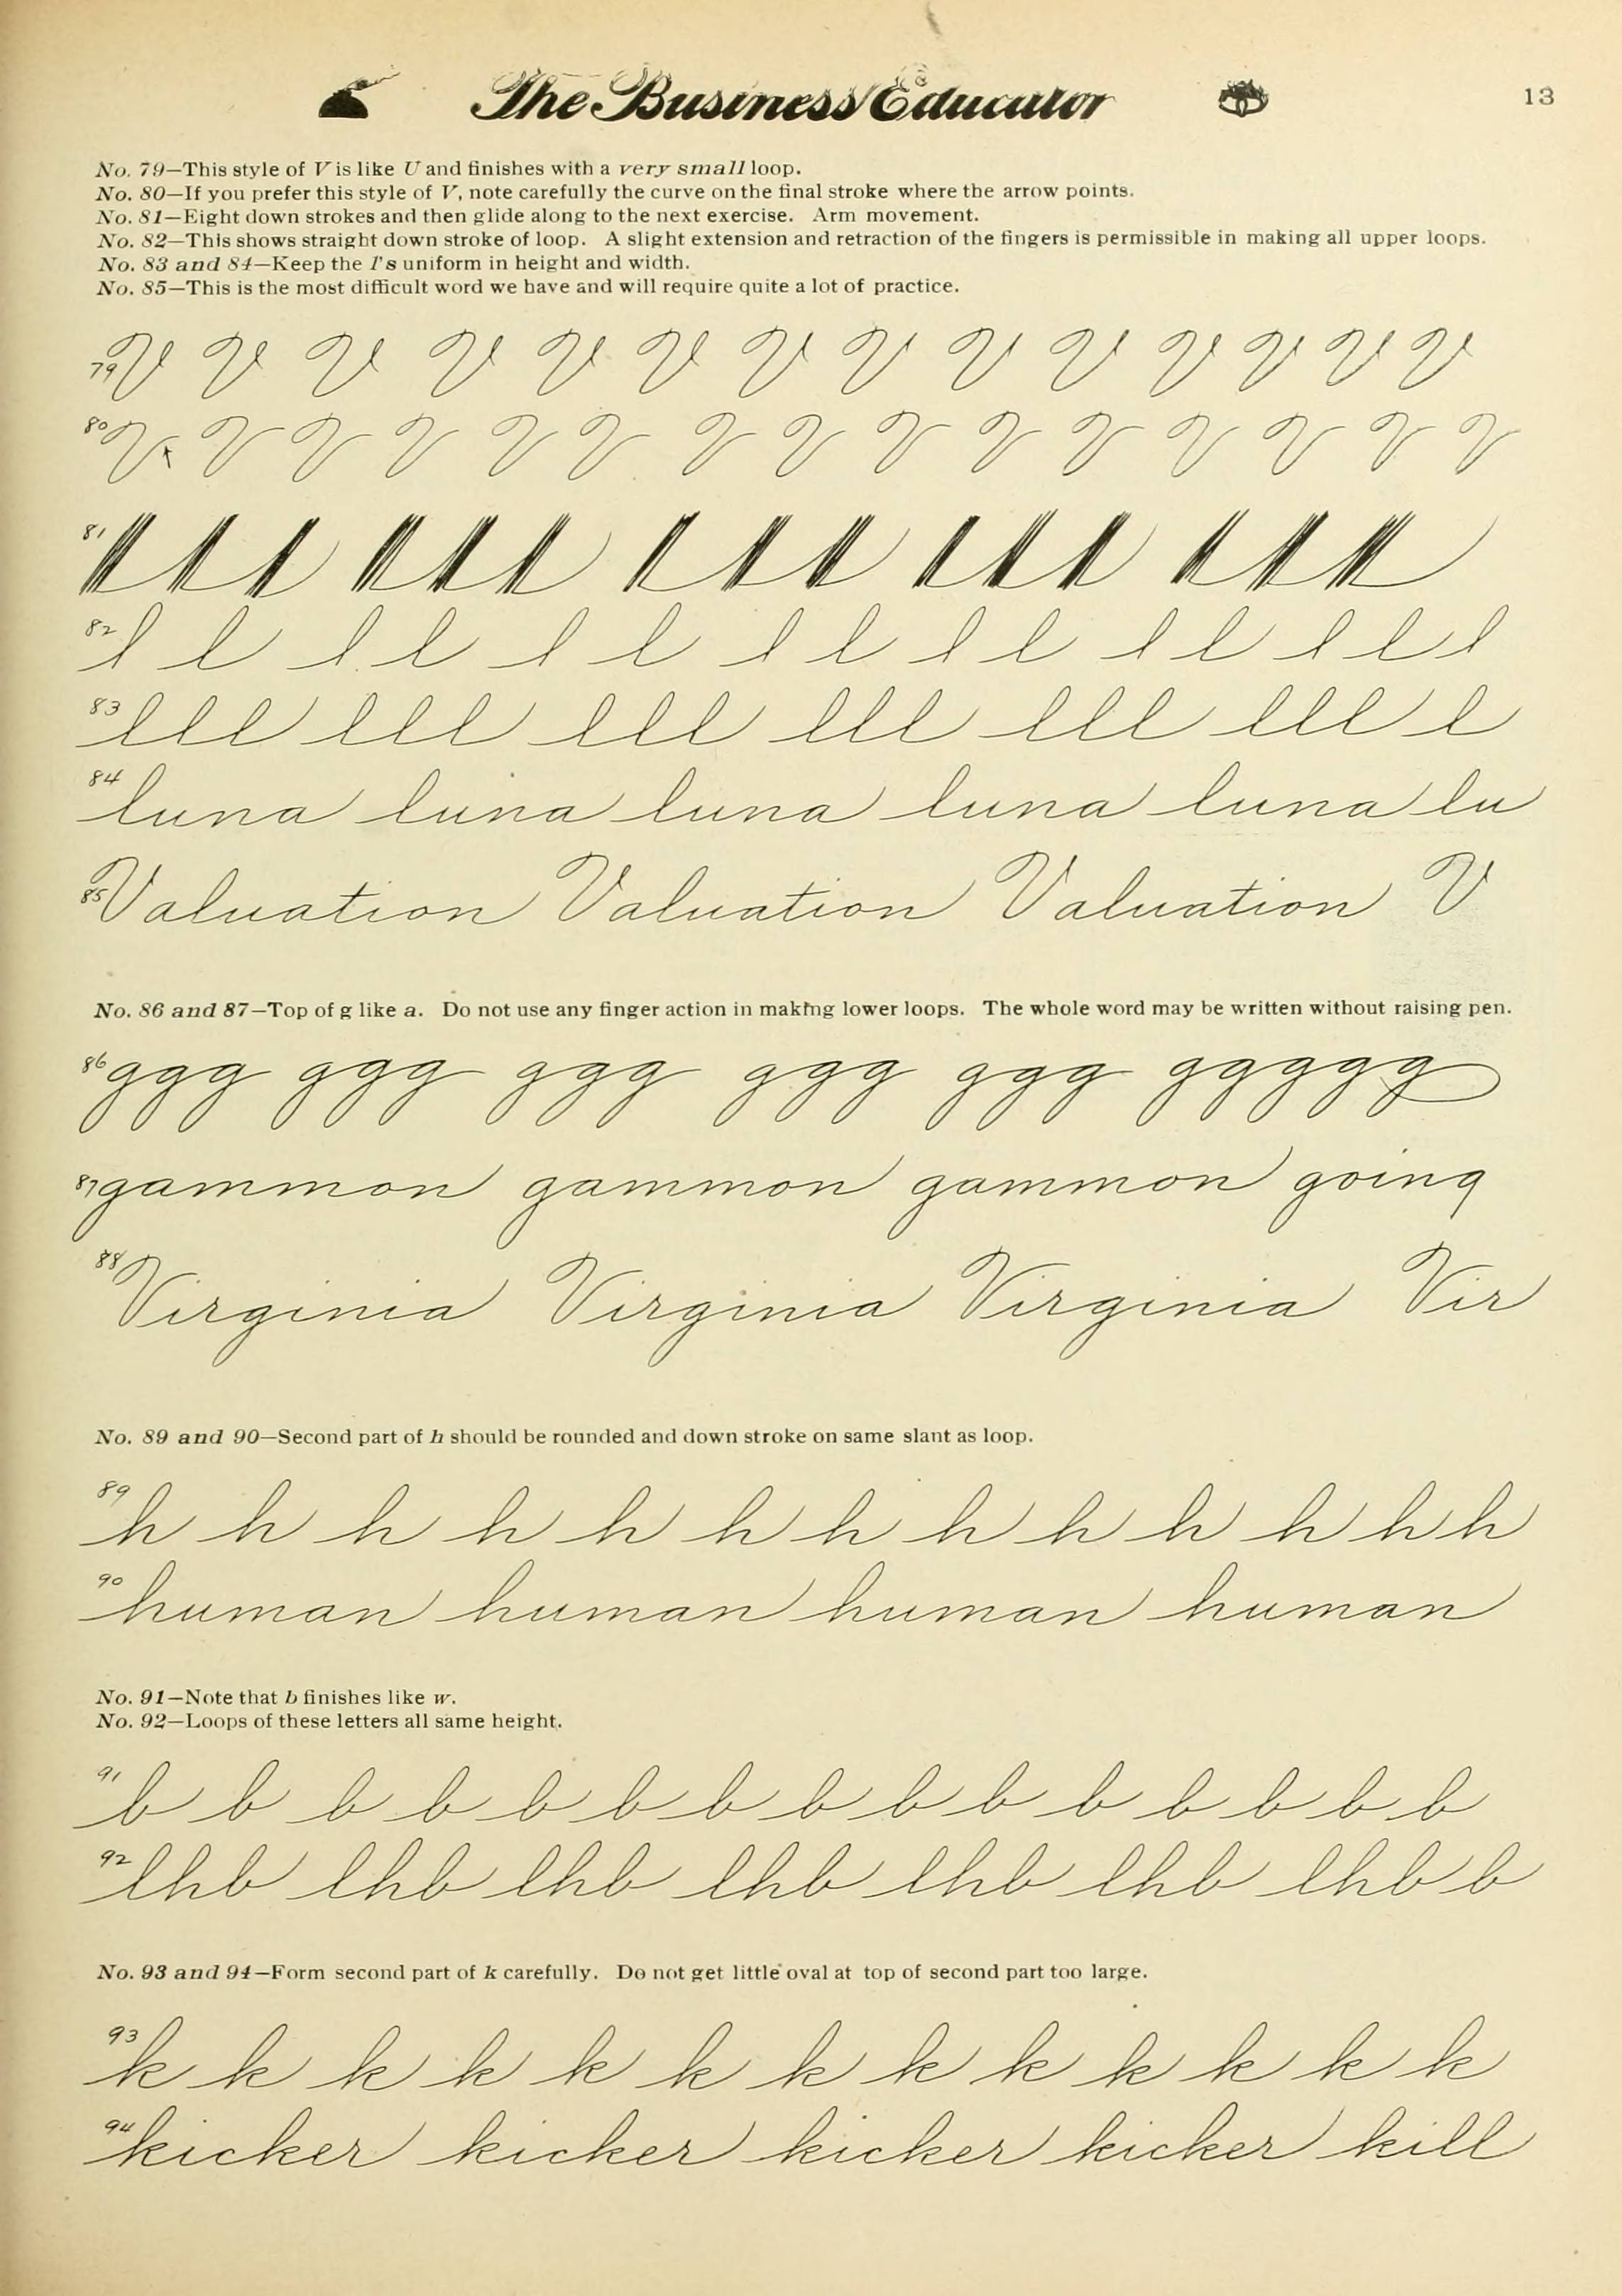 The Business Educator 13
No. 79—This style of V is like U and finishes with a very small loop.
No. 80—If you prefer this style of V, note carefully the curve on the final stroke where the arrow points.
No. 81—Eight down strokes and then glide along to the next exercise. Arm movement.
No. 82—This shows straight down stroke of loop. A slight extension and retraction of the fingers is permissible in making all upper loops.
No. 83 and 84—Keep the l's uniform in height and width.
No. 85—This is the most difficult word we have and will require quite a lot of practice.
79 V V V V V V V V V V V V V V
80 V V V V V V V V V V V V V V V
81
82 l l l l l l l l l l l l l l l
83 lll lll lll lll lll lll l
84 luna luna luna luna luna lu
85 Valuation Valuation Valuation V
No. 86 and 87—Top of g like a. Do not use any finger action in making lower loops. The whole word may be written without raising pen.
86 ggg ggg ggg ggg ggg ggggg
87 gammon gammon gammon going
88 Virginia Virginia Virginia Vir
No. 89 and 90—Second part of h should be rounded and down stroke on same slant as loop.
89 h h h h h h h h h h h h h
90 human human human human
No. 91—Note that b finishes like w.
No. 92—Loops of these letters all same height.
91 b b b b b b b b b b b b b b b
92 lhb lhb lhb lhb lhb lhb lhb b
No. 93 and 94—Form second part of k carefully. Do not get little oval at top of second part too large.
93 k k k k k k k k k k k k k
94 kicker kicker kicker kicker kill